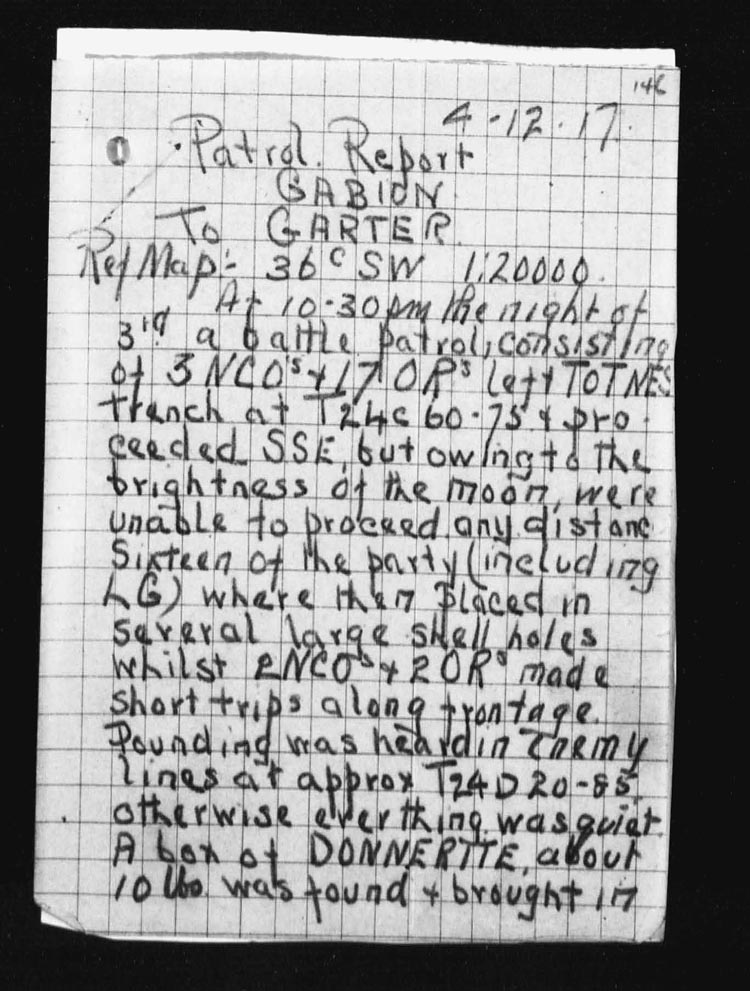 146
4-12-17.
Patrol. Report
GABION
To GARTER.
Ref Map:- 36c SW 1:20000.
At 10-30pm the night of
3rd a battle patrol, consisting
of 3 NCO's + 17 ORs left TOTNES
trench at T24c 60-75 + pro-
ceeded SSE, but owing to the
brightness of the moon, were
unable to proceed any distanc
Sixteen of the party (including
LG) where then placed in
several large shell holes
whilst 2NCOs + 2 ORs made
short trips along frontage.
Pounding was heard in Enemy
lines at approx T24D 20-85,
otherwise everthing was quiet.
A box of DONNERTTE, about
10 lbs. was found + brought in